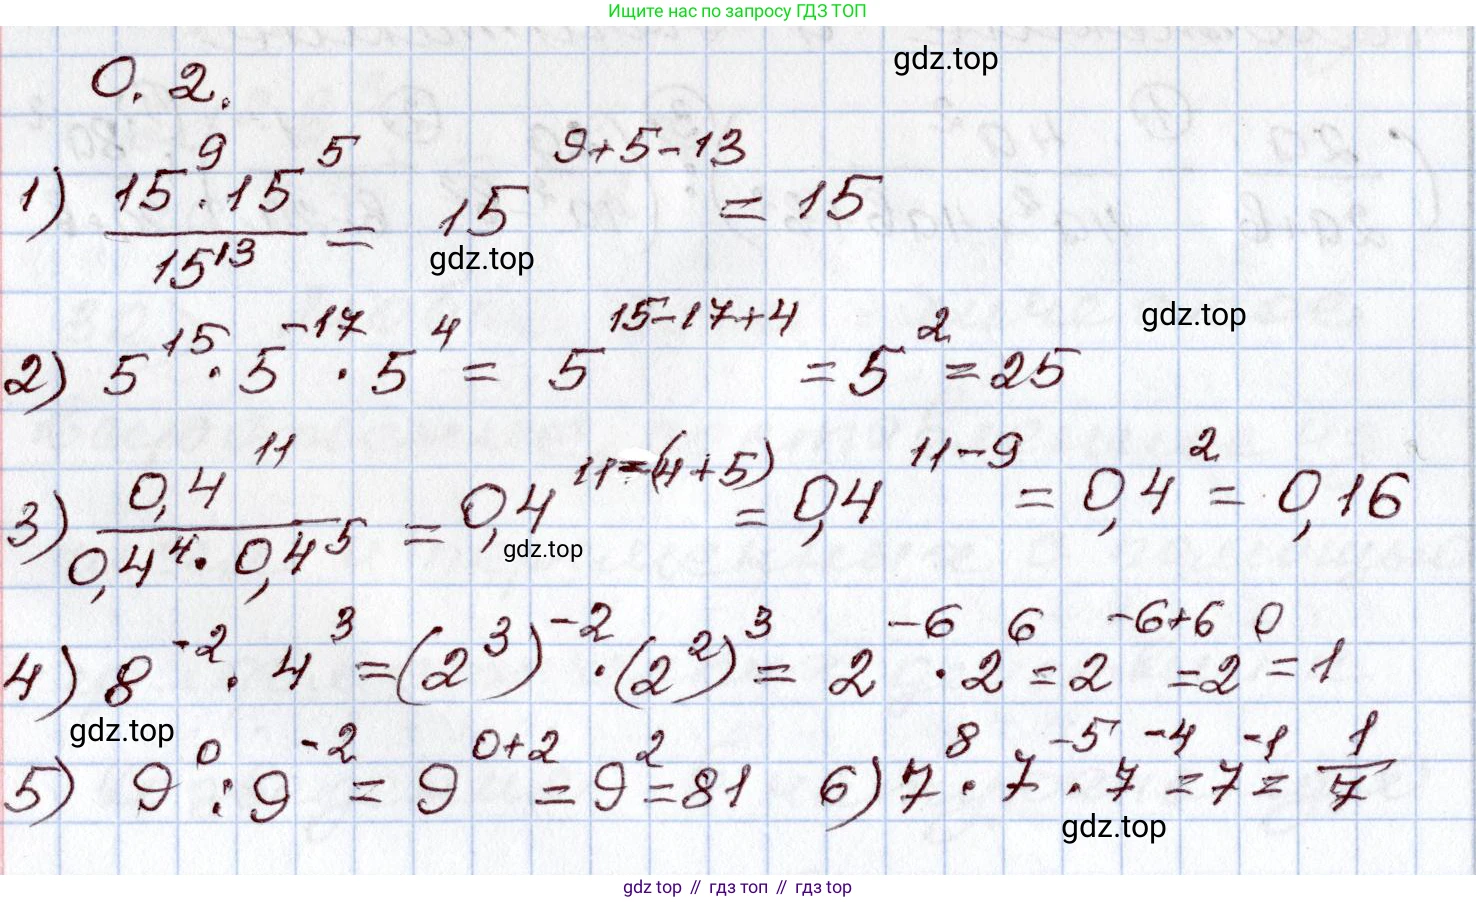 Ищите нас по запросу ГДЗ ТОП
gdz.top
0.2.
1) \frac{15^9 \cdot 15^5}{15^{13}} = 15^{9+5-13} = 15
gdz.top
2) 5^{15} \cdot 5^{-17} \cdot 5^4 = 5^{15-17+4} = 5^2 = 25
gdz.top
3) \frac{0,4^{11}}{0,4^4 \cdot 0,4^5} = 0,4^{11-(4+5)} = 0,4^{11-9} = 0,4^2 = 0,16
gdz.top
4) 8^{-2} \cdot 4^3 = (2^3)^{-2} \cdot (2^2)^3 = 2^{-6} \cdot 2^6 = 2^{-6+6} = 2^0 = 1
gdz.top
5) 9^0 : 9^{-2} = 9^{0+2} = 9^2 = 81 6) 7^8 \cdot 7^{-5} \cdot 7^{-4} = 7^{-1} = \frac{1}{7}
gdz.top
gdz.top // гдз топ // гдз top